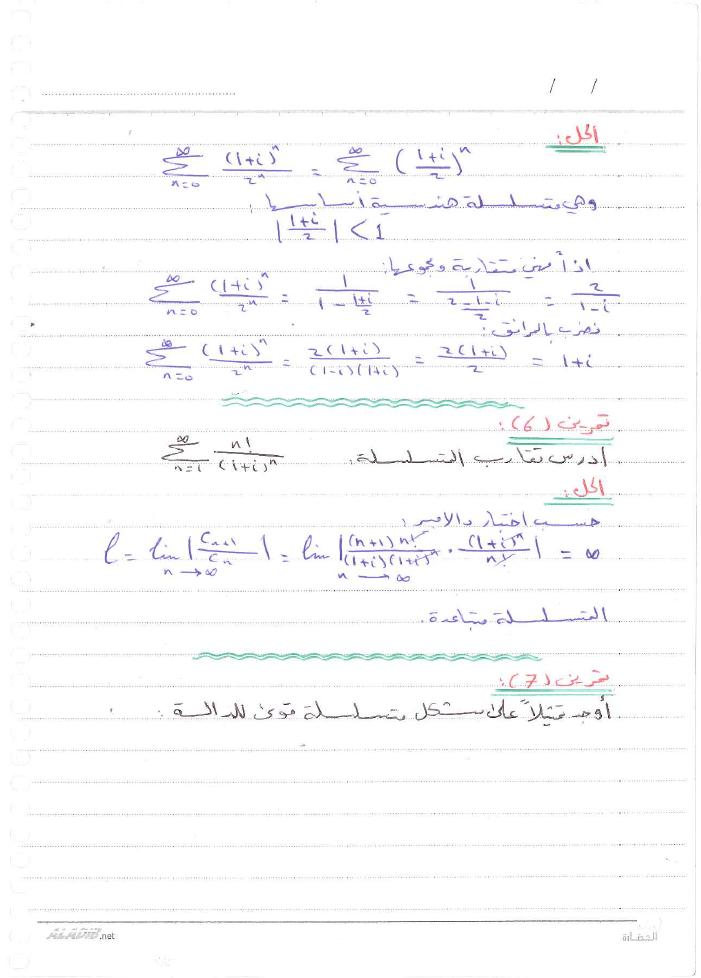 / /
الحل:
∑_{n=0}^{∞} (1+i)^n / 2^n = ∑_{n=0}^{∞} ((1+i)/2)^n
وهي متسلسلة هندسية أساسها:
|(1+i)/2| < 1
اذاً فهي متقاربة ومجموعها:
∑_{n=0}^{∞} (1+i)^n / 2^n = 1 / (1 - (1+i)/2) = 1 / ((2-1-i)/2) = 2 / (1-i)
نضرب بالمرافق:
∑_{n=0}^{∞} (1+i)^n / 2^n = 2(1+i) / (1-i)(1+i) = 2(1+i) / 2 = 1+i
تمرين (6):
ادرس تقارب المتسلسلة: ∑_{n=1}^{∞} n! / (1+i)^n
الحل:
حسب اختبار دالامبير:
l = lim_{n→∞} |C_{n+1} / C_n| = lim_{n→∞} |(n+1) n! / (1+i)(1+i)^n · (1+i)^n / n!| = ∞
المتسلسلة متباعدة.
تمرين (7):
أوجد تمثيلاً على شكل متسلسلة قوى للدالة:
ALADIB.net
الحضارة